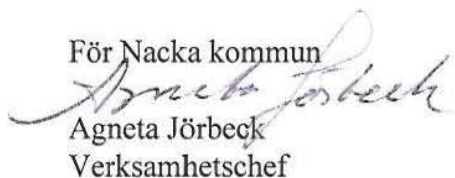 För Nacka kommun
Agneta Jörbeck
Agneta Jörbeck
Verksamhetschef